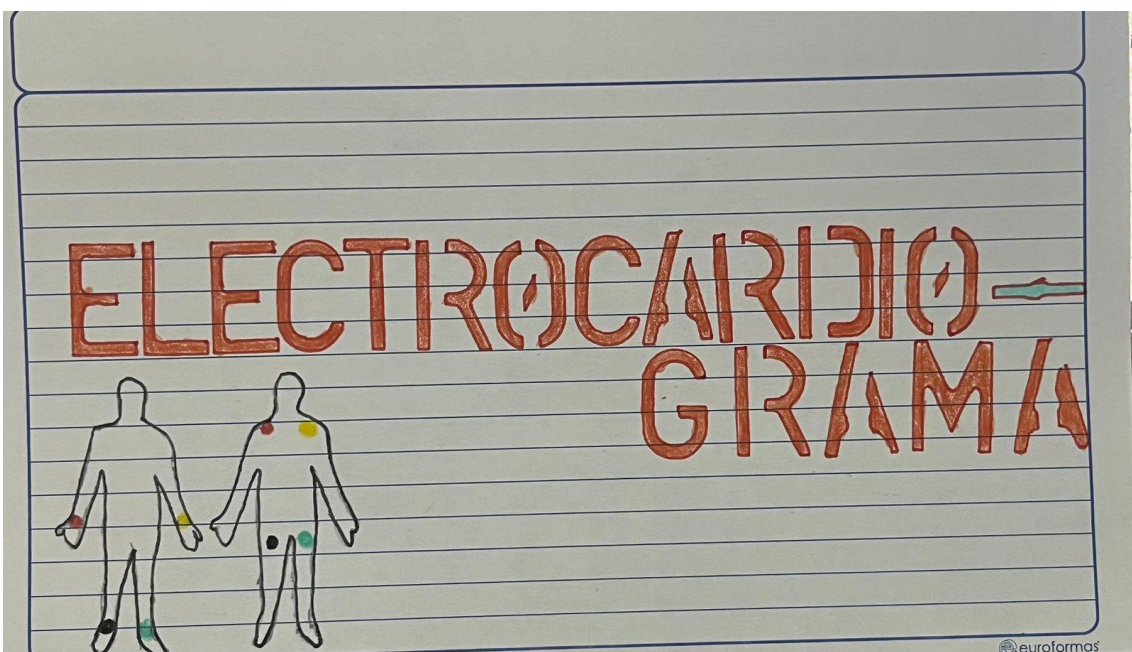 ELECTROCARDIO-
GRAMA
euroformas